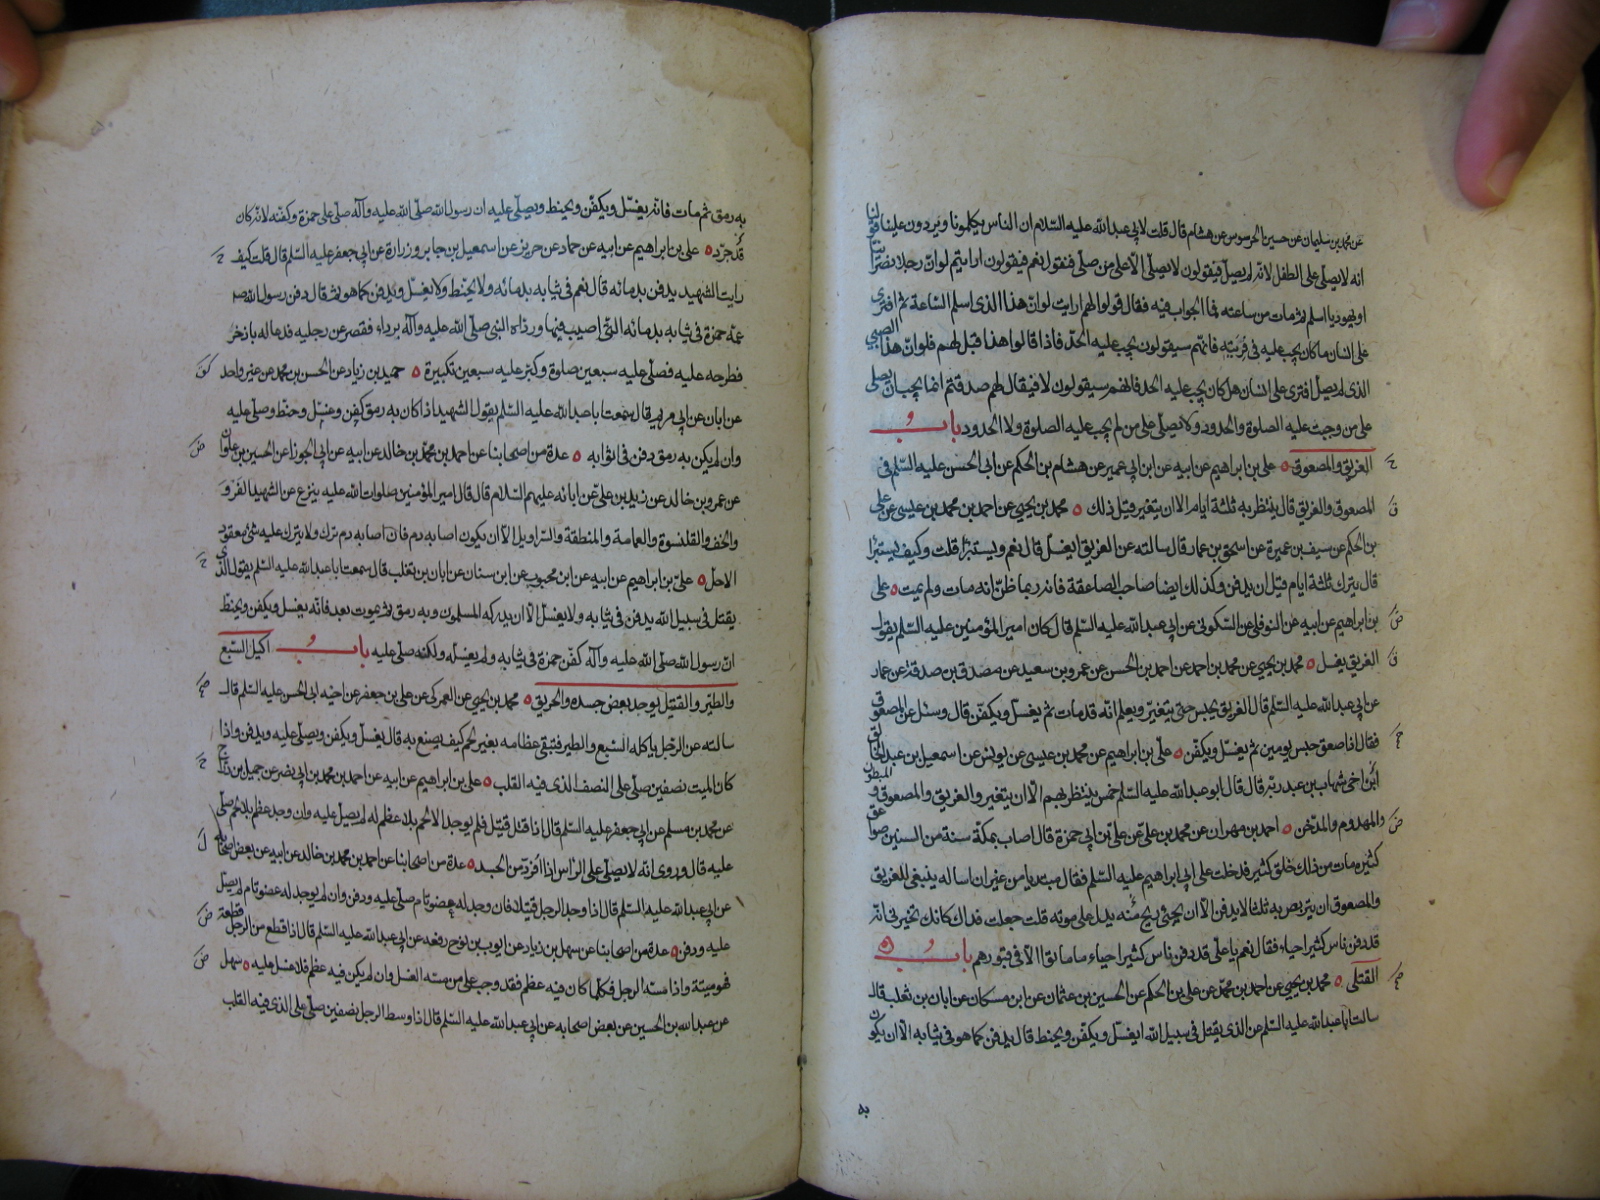 عن محمد بن سليمان عن حسين الحرسوس عن هشام قال قلت لابي عبد الله عليه السلام ان الناس يكلمونا ويردون علينا قولنا
انه لا يصلى على الطفل لانه لم يصل فيقولون لا يصلى الا على من صلى فنقول نعم فيقولون ارايتم لو ان رجلا نصرانيا
او يهوديا اسلم ثم مات من ساعته فما الجواب فيه فقال قولوا لهم ارايت لو ان هذا الذي اسلم الساعة ثم افترى
على انسان ما كان يجب عليه في فريته فانهم سيقولون يجب عليه الحد فاذا قالوا هذا قيل لهم فلو ان هذا الصبي
الذي لم يصل افترى على انسان هل كان يجب عليه الحد فانهم سيقولون لا فيقال لهم صدقتم انما يجب ان يصلى
على من وجبت عليه الصلوة والحدود ولا يصلى على من لم يجب عليه الصلوة ولا الحدود باب
الغريق والمصعوق علي بن ابراهيم عن ابيه عن ابن ابي عمير عن هشام بن الحكم عن ابي الحسن عليه السلم في
المصعوق والغريق قال ينتظر به ثلثة ايام الا ان يتغير قبل ذلك محمد بن يحيى عن احمد بن محمد بن عيسى عن علي
بن الحكم عن سيف بن عميرة عن اسحق بن عمار قال سالته عن الغريق ايغسل قال نعم ويستبرا قلت وكيف يستبرا
قال يترك ثلثة ايام قبل ان يدفن وكذلك ايضا صاحب الصاعقة فانه ربما ظن انه مات ولم يمت علي
بن ابراهيم عن ابيه عن النوفلي عن السكوني عن ابي عبد الله عليه السلم قال كان امير المؤمنين عليه السلم يقول
الغريق يغسل محمد بن يحيى عن محمد بن احمد عن احمد بن الحسن عن عمرو بن سعيد عن مصدق بن صدقة عن عمار
عن ابي عبد الله عليه السلم قال الغريق يحبس حتى يتغير ويعلم انه قد مات ثم يغسل ويكفن قال وسئل عن المصعوق
فقال اذا صعق حبس يومين ثم يغسل ويكفن علي بن ابراهيم عن محمد بن عيسى عن يونس عن اسمعيل بن عبد الخالق
ابن اخي شهاب بن عبد ربه قال قال ابو عبد الله عليه السلم خمس ينتظر بهم الا ان يتغير والغريق والمصعوق والمبطون
والمهدوم والمدخن احمد بن مهران عن محمد بن علي عن علي بن ابي حمزة قال اصاب بمكة سنة من السنين صواعق
كثيرة مات من ذلك خلق كثير فدخلت على ابي ابراهيم عليه السلم فقال مبتديا من غير ان اساله ينبغي للغريق
والمصعوق ان يتربص به ثلثا لا يدفن الا ان يجئ منه ريح يدل على موته قلت جعلت فداك كانك تخبرني انه
قد دفن ناس كثير احياء فقال نعم يا علي قد دفن ناس كثير احياء ما ماتوا الا في قبورهم باب
القتلى محمد بن يحيى عن احمد بن محمد عن علي بن الحكم عن الحسين بن عثمان عن ابن مسكان عن ابان بن تغلب قال
سالت ابا عبد الله عليه السلم عن الذي يقتل في سبيل الله ايغسل ويكفن ويحنط قال يدفن كما هو في ثيابه الا ان يكون
به
به رمق ثم مات فانه يغسل ويكفن ويحنط ويصلى عليه ان رسول الله صلى الله عليه وآله صلى على حمزة وكفنه لانه كان
قد جرد علي بن ابراهيم عن ابيه عن حماد عن حريز عن اسمعيل بن جابر وزرارة عن ابي جعفر عليه السلم قال قلت كيف
رايت الشهيد يدفن بدمائه قال نعم في ثيابه بدمائه ولا يحنط ولا يغسل ويدفن كما هو ثم قال دفن رسول الله
عمه حمزة في ثيابه بدمائه التي اصيب فيها ورداه النبي صلى الله عليه وآله برداء فقصر عن رجليه فدعا له باذخر
فطرحه عليه فصلى عليه سبعين صلوة وكبر عليه سبعين تكبيرة حميد بن زياد عن الحسن بن محمد عن غير واحد
عن ابان عن ابي مريم قال سمعت ابا عبد الله عليه السلم يقول الشهيد اذا كان به رمق كفن وغسل وحنط وصلى عليه
وان لم يكن به رمق دفن في اثوابه عدة من اصحابنا عن احمد بن محمد بن خالد عن ابيه عن ابي الجوزا عن الحسين بن علوان
عن عمرو بن خالد عن زيد بن علي عن ابائه عليهم السلام قال قال امير المؤمنين صلوات الله عليه ينزع عن الشهيد الفرو
والخف والقلنسوة والعمامة والمنطقة والسراويل الا ان يكون اصابه دم فان اصابه دم ترك ولا يترك عليه شئ معقود
الا حل علي بن ابراهيم عن ابيه عن ابن محبوب عن ابن سنان عن ابان بن تغلب قال سمعت ابا عبد الله عليه السلم يقول الذي
يقتل في سبيل الله يدفن في ثيابه ولا يغسل الا ان يدركه المسلمون وبه رمق ثم يموت بعد فانه يغسل ويكفن ويحنط
ان رسول الله صلى الله عليه وآله كفن حمزة في ثيابه ولم يغسله ولكنه صلى عليه باب اكيل السبع
والطير والقتيل يوجد بعض جسده والحريق محمد بن يحيى عن العمركي عن علي بن جعفر عن اخيه ابي الحسن عليه السلم قال
سالته عن الرجل ياكله السبع والطير فتبقى عظامه بغير لحم كيف يصنع به قال يغسل ويكفن ويصلى عليه ويدفن واذا
كان الميت نصفين صلى على النصف الذي فيه القلب علي بن ابراهيم عن ابيه عن احمد بن محمد بن ابي نصر عن جميل بن دراج
عن محمد بن مسلم عن ابي جعفر عليه السلم قال اذا قتل قتيل فلم يوجد الا لحم بلا عظم له لم يصل عليه وان وجد عظم بلا لحم صلى
عليه قال وروى انه لا يصلى على الراس اذا افرد من الجسد عدة من اصحابنا عن احمد بن محمد بن خالد عن ابيه عن بعض اصحابه
عن ابي عبد الله عليه السلم قال اذا وجد الرجل قتيلا فان وجد له عضو تام صلى عليه ودفن وان لم يوجد له عضو تام لم يصل
عليه ودفن عدة من اصحابنا عن سهل بن زياد عن ايوب بن نوح رفعه عن ابي عبد الله عليه السلم قال اذا قطع من الرجل قطعة
فهو ميتة واذا مسه الرجل فكلما كان فيه عظم فقد وجب على من مسه الغسل وان لم يكن فيه عظم فلا غسل عليه سهل
عن عبد الله بن الحسين عن بعض اصحابه عن ابي عبد الله عليه السلم قال اذا وسط الرجل بنصفين صلى على الذي فيه القلب